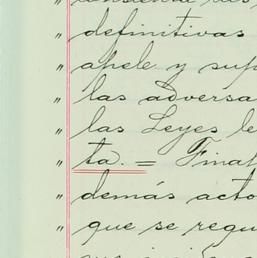 " definitivas
" apele y sup
" las adversa
" las Leyes le
" ta. = Final
" demás acto
" que se requ